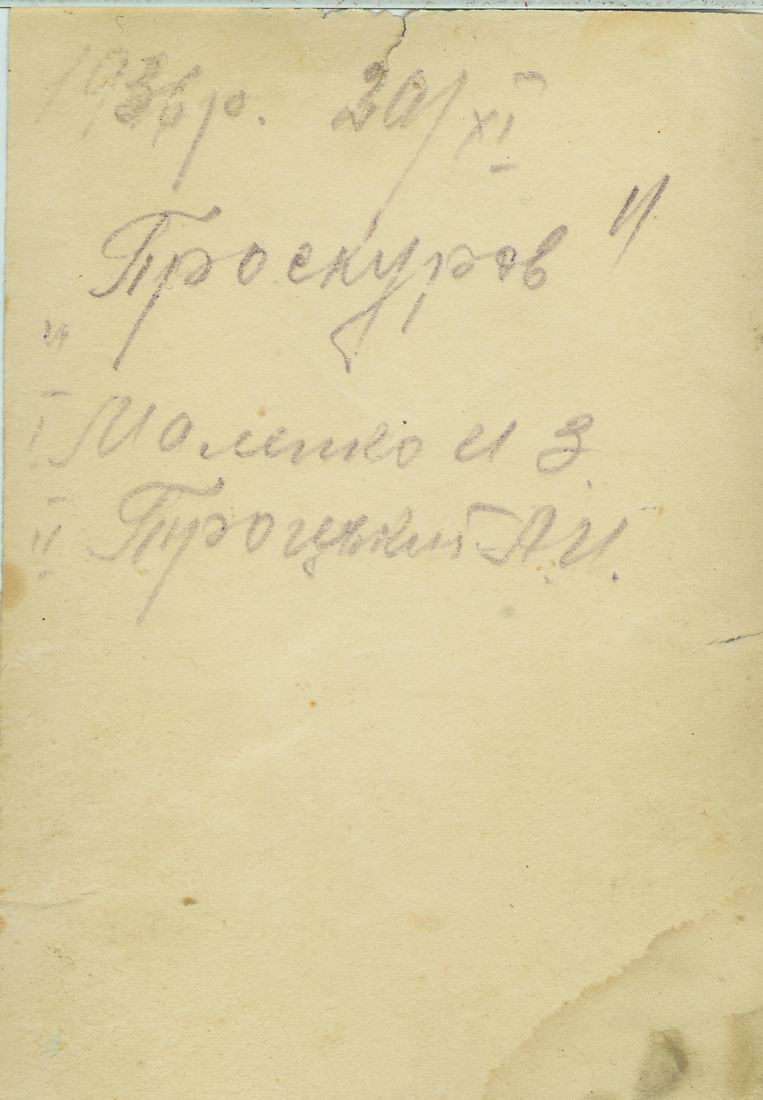 1936 р. 20/XI
"Проскуров"
I Маленко И З
II Троцький А И.